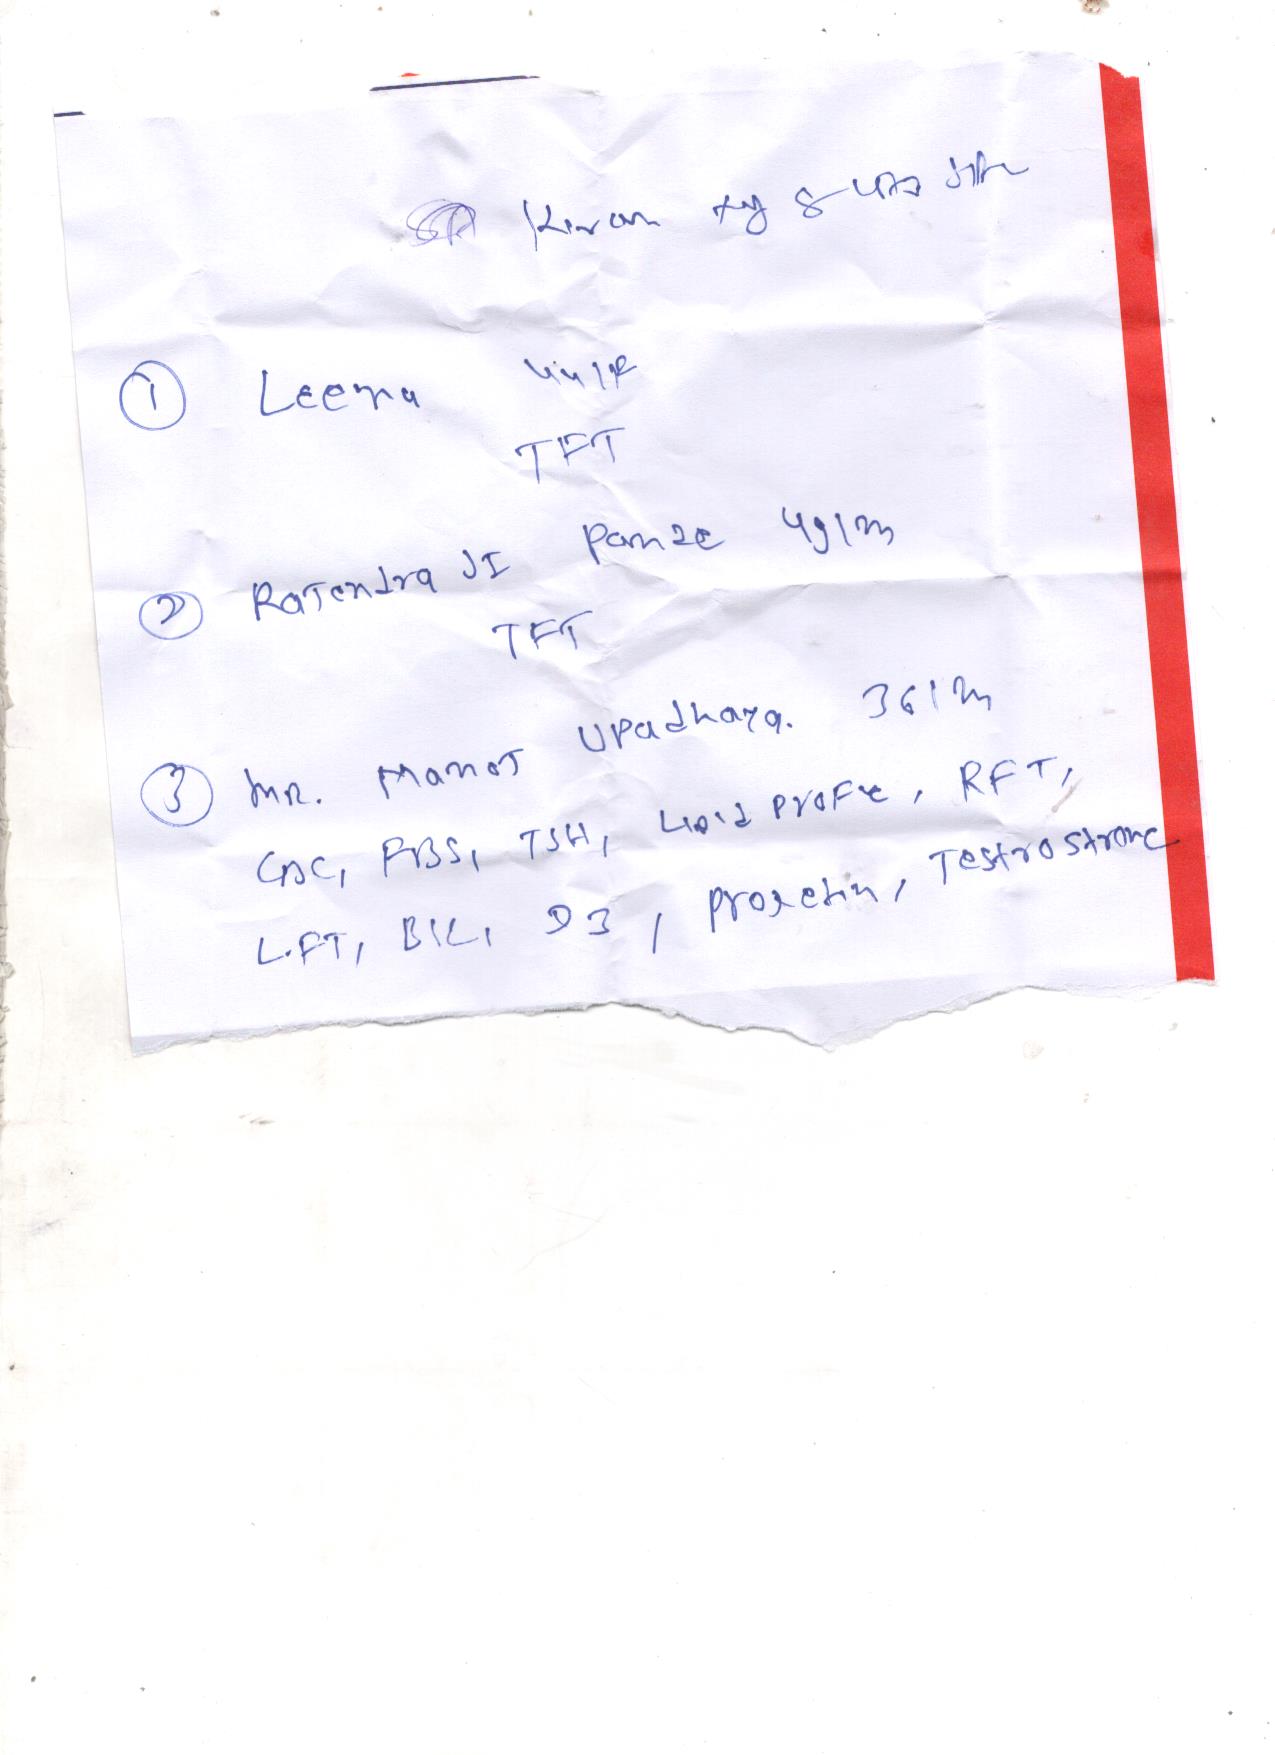 Kiran
① Leema 44/F
TFT
② Rajendra JI Panze 49/m
TFT
③ Mr. Manoj Upadhaya. 36/m
CBC, FBS, TSH, Lipid Profie, RFT,
L.FT, B12, D3, Proxctin, Testrostrone